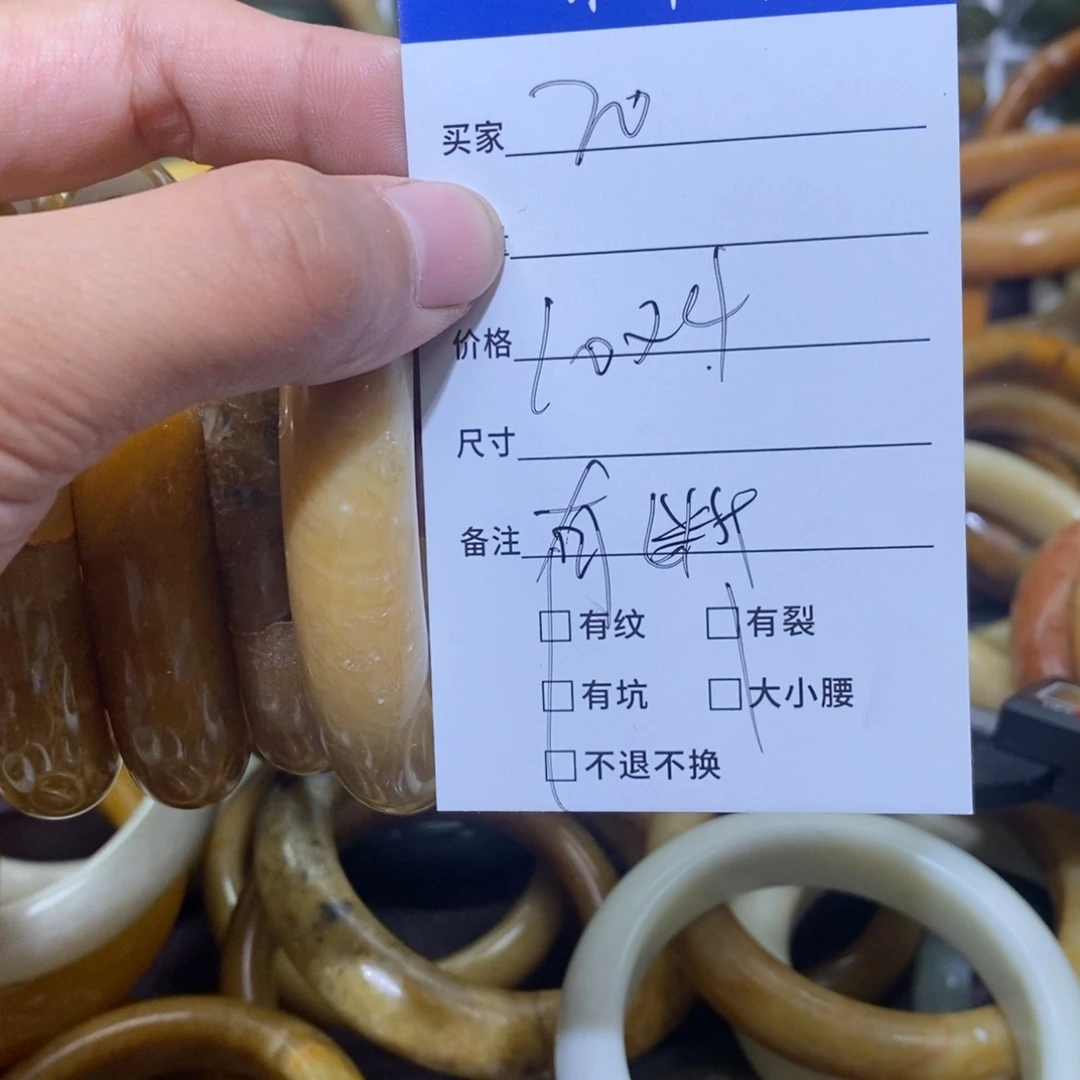 买家 70
价格 1024
尺寸
备注 有
□有纹 □有裂
□有坑 □大小腰
□不退不换